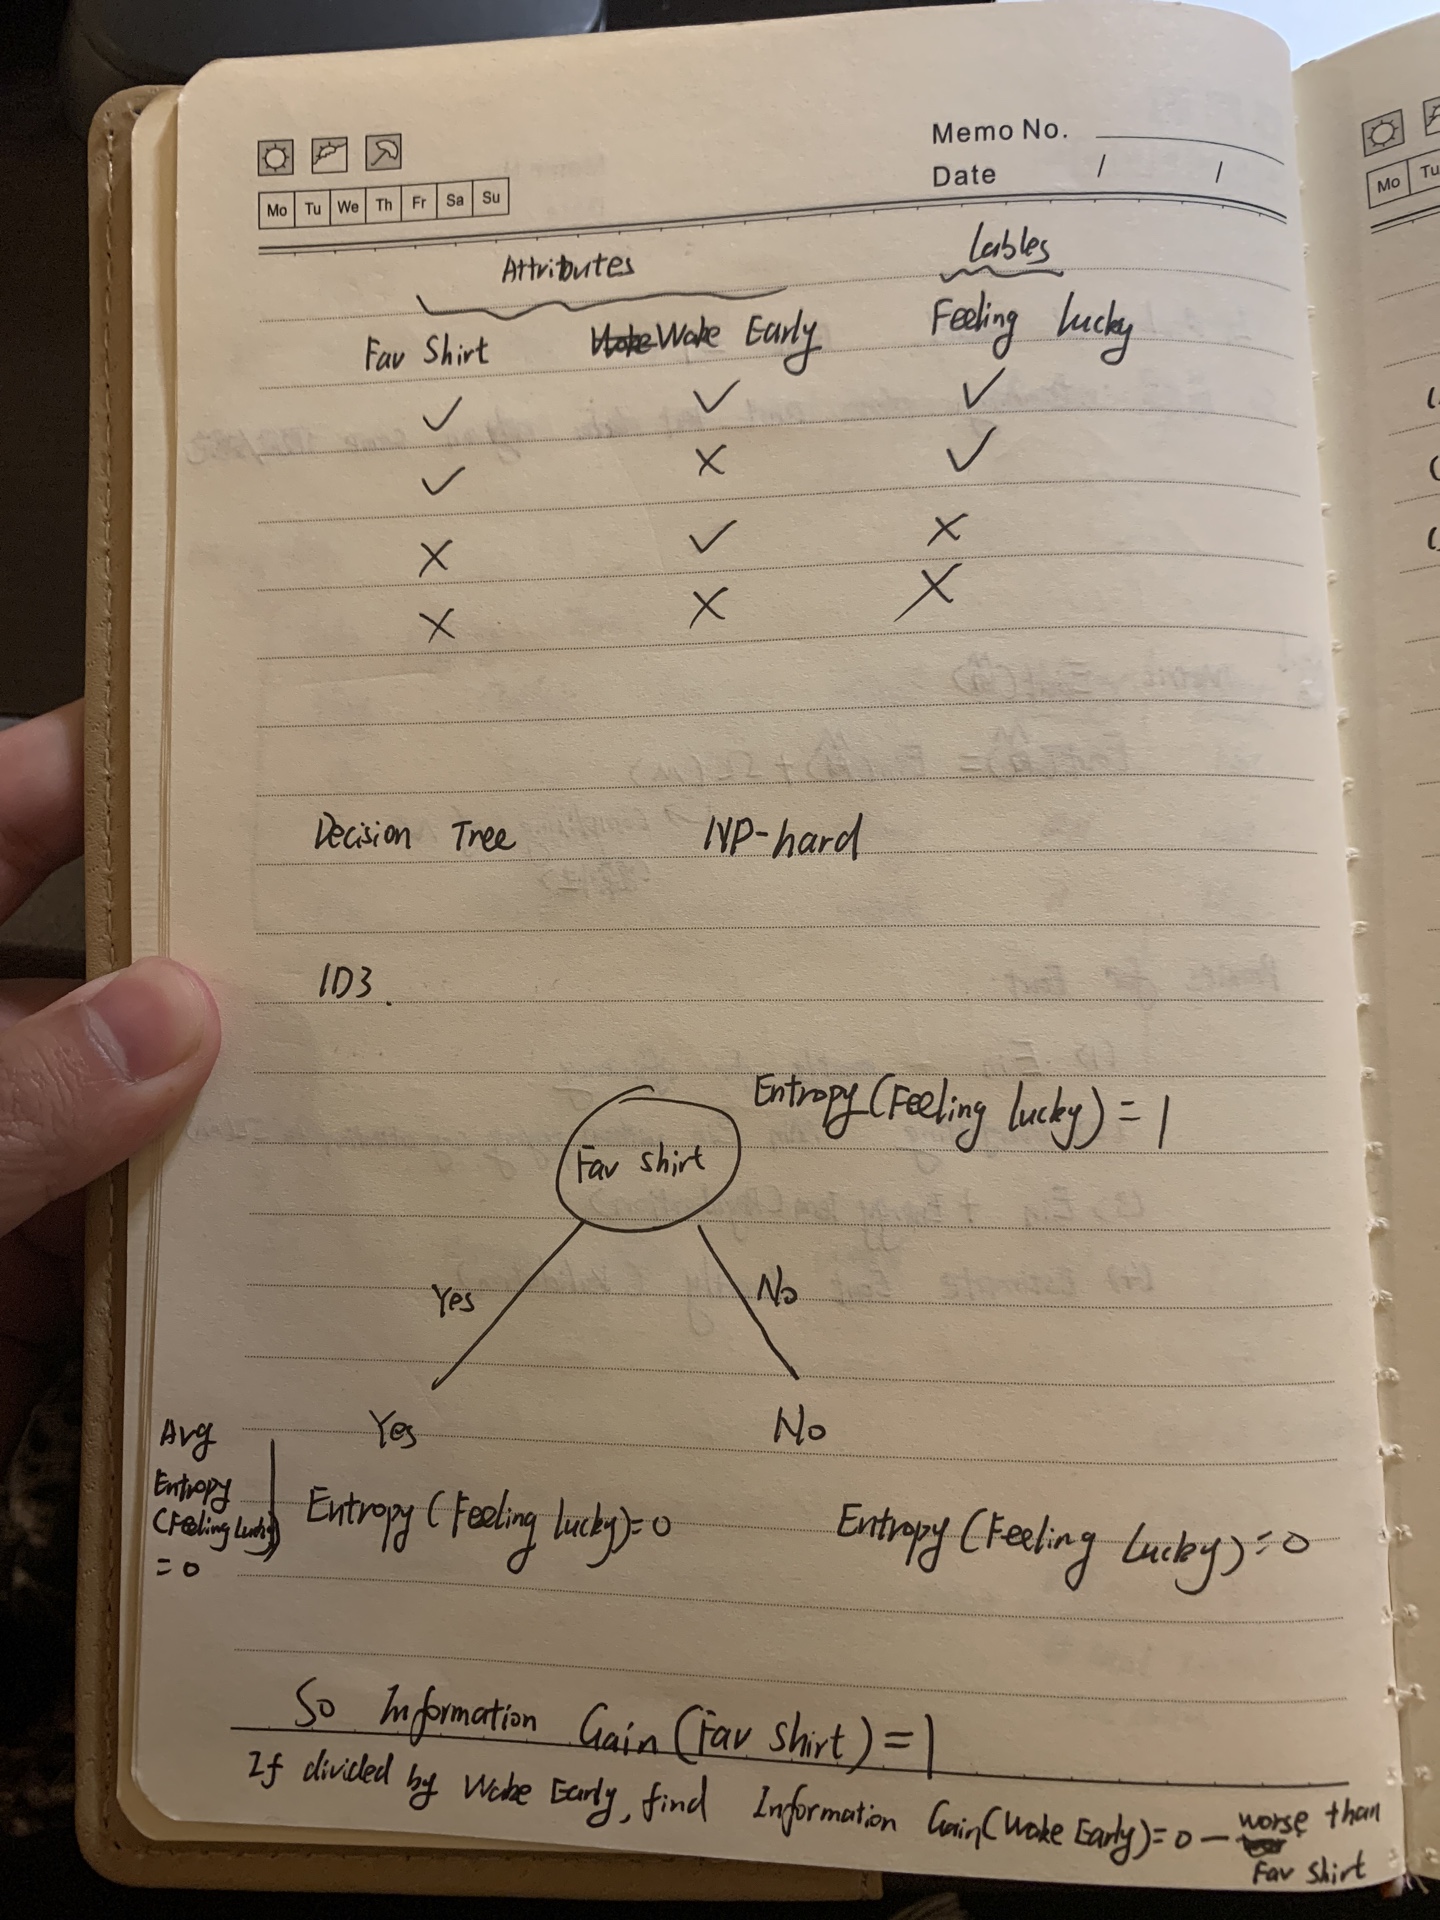 Memo No.
Date / /
Mo Tu We Th Fr Sa Su
Mo Tu
Attributes Lables
Fav Shirt Woke Early Feeling Lucky
✓ ✓ ✓
✓ × ✓
× ✓ ×
× × ×
Decision Tree NP-hard
ID3.
Entropy (Feeling lucky) = 1
Fav shirt
Yes No
Yes No
Avg
Entropy
(Feeling Lucky)
= 0
Entropy (Feeling lucky) = 0 Entropy (Feeling Lucky) = 0
So Information Gain (Fav shirt) = 1
If divided by Woke Early, find Information Gain (Woke Early) = 0 — worse than
Fav shirt